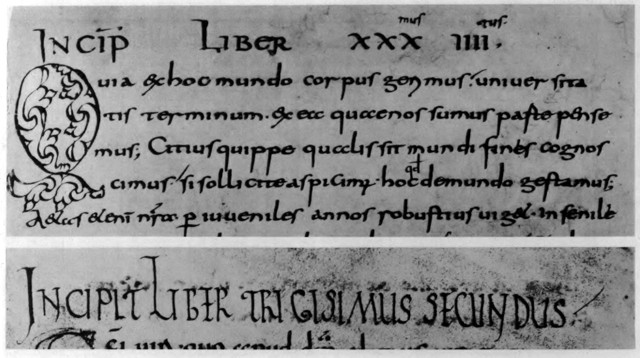 INCIP̄ LIBER XXX^mus IIII^tus.
Quia ex hoc mundo corpus gerimus. univer sita
tis terminum. ex ea quae nos sumus parte pense
mus; Citius quippe qualis sit mundi fines cognos
cimus. si sollicite aspicim; hoc qđ de mundo gestamus;
Aetas etenī nr̄a ꝑ iuveniles annos robustius viget. In senile
INCIPIT LIBER TRIGISIMUS SECUNDUS